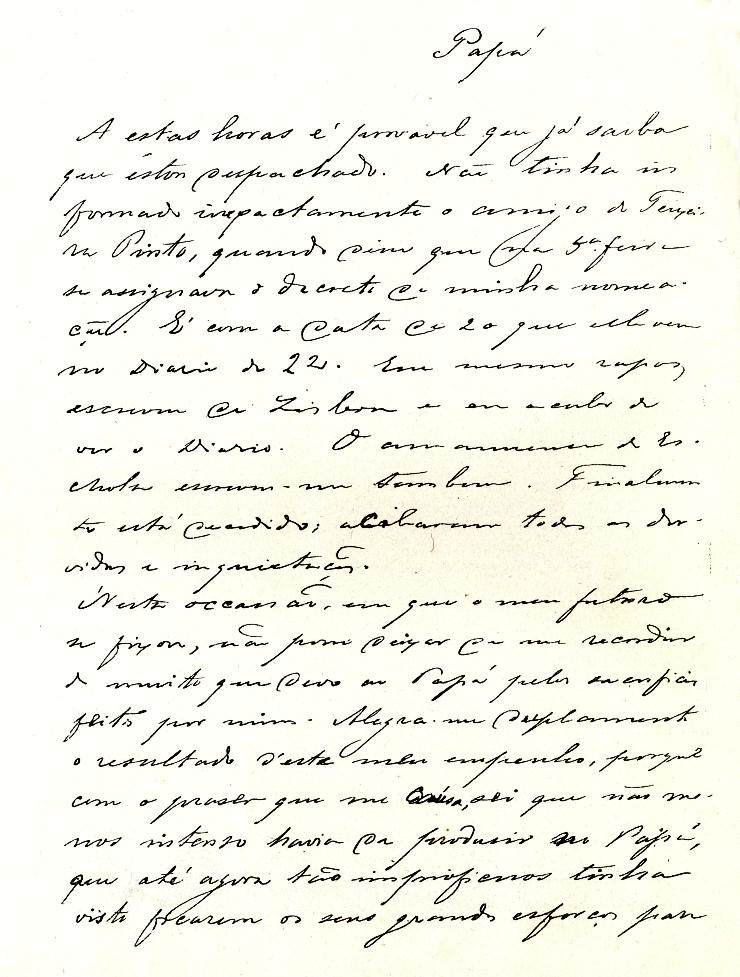 Papá
A estas horas é provavel que já saiba
que estou despachado. Não tinha in
formado inexactamente o amigo do Teixei-
ra Pinto, quando disse que na 5ª feira
se assignava o decreto de minha nomea-
ção. É com a data de 20 que elle vem
no Diario de 22. Um mesmo rapaz
escreveu de Lisboa e eu acabo de
ver o Diario. O amanuense da Es-
chola escreveu-me tambem. Finalmen
te está decidido; acabaram todas as du-
vidas e inquietações.
Nesta occasião, em que o meu futuro
se fixou, não posso deixar de me recordar
do muito que devo ao Papá pelos sacrificios
feitos por mim. Alegra-me duplamente
o resultado d'este meu empenho, porque
com o praser que me causa, sei que não me-
nos intenso havia de produsir no Papá,
que até agora tão improficuos tinha
visto ficarem os seus grandes esforços para